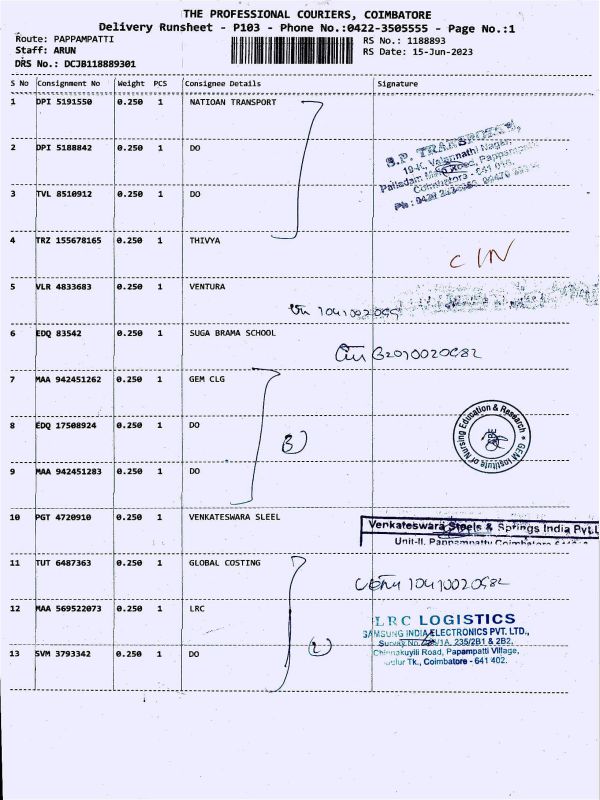 THE PROFESSIONAL COURIERS, COIMBATORE
Delivery Runsheet - P103 - Phone No.:0422-3505555 - Page No.:1
Route: PAPPAMPATTI
RS No.: 1188893
Staff: ARUN
RS Date: 15-Jun-2023
DRS No.: DCJB118889301
S No Consignment No Weight PCS Consignee Details Signature
1 DPI 5191550 0.250 1 NATIOAN TRANSPORT
2 DPI 5188842 0.250 1 DO
S.P. TRANSPORT,
3 TVL 8510912 0.250 1 DO
4 TRZ 155678165 0.250 1 THIVYA
5 VLR 4833683 0.250 1 VENTURA
6 EDQ 83542 0.250 1 SUGA BRAMA SCHOOL
7 MAA 942451262 0.250 1 GEM CLG
8 EDQ 17508924 0.250 1 DO
3
GEM Institute of Nursing Education & Research
9 MAA 942451283 0.250 1 DO
10 PGT 4720910 0.250 1 VENKATESWARA SLEEL
Venkateswara Steels & Springs India Pvt.L
Unit-II. Pappampatty Coimbatore
11 TUT 6487363 0.250 1 GLOBAL COSTING
12 MAA 569522073 0.250 1 LRC
LRC LOGISTICS
SAMSUNG INDIA ELECTRONICS PVT. LTD.,
235/2B1 & 2B2,
13 SVM 3793342 0.250 1 DO
Chinnakuyili Road, Papampatti Village,
Tk., Coimbatore - 641 402.